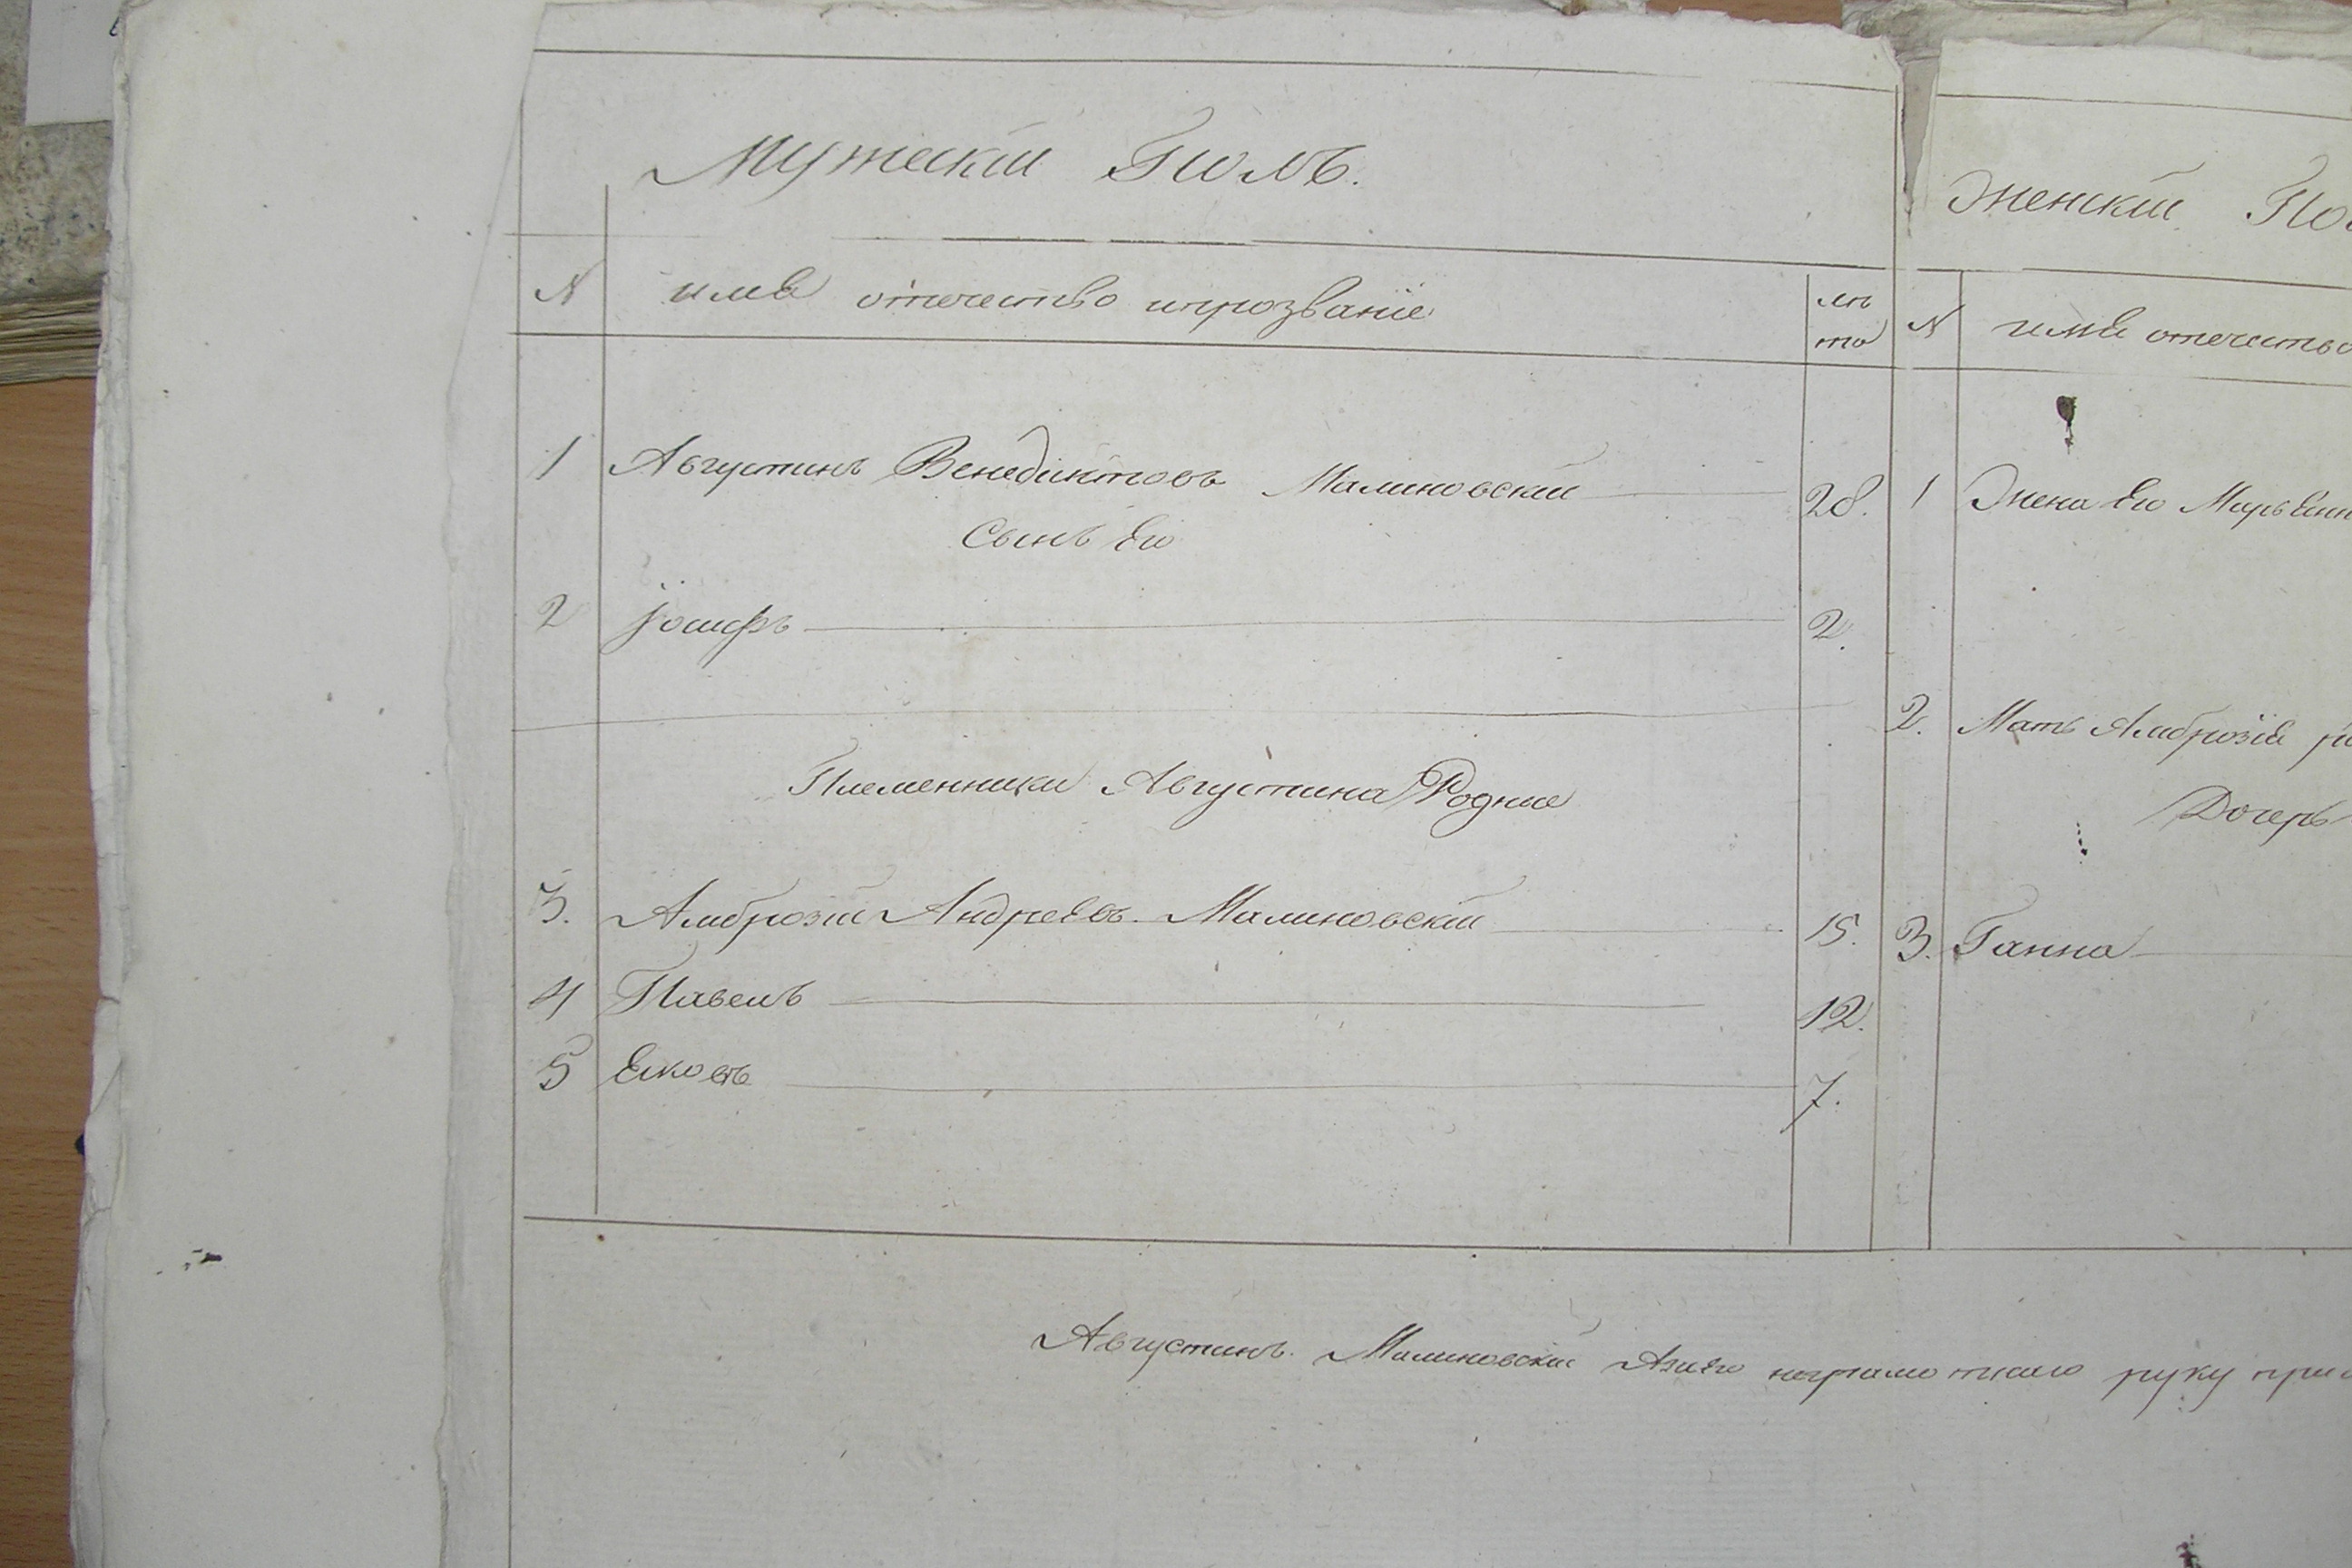 Мужескiй Полъ.
N имѣ отечество ипрозванiе лѣ
та
1 Августинъ Венедиктовъ Малиновскiй 28.
Сынъ Его
2 Јосифъ 2.
Племенники Августина Родные
3. Амброзiй Андреевъ Малиновскiй 15.
4 Павелъ 12.
5 Ековъ 7.
Женскiй По
N имѣ отечество
1 Жена Его
2. Мать Амброзiѣ
Дочерь
3. Ганна
Августинъ Малиновскiй Азаего неграмотнаго руку при